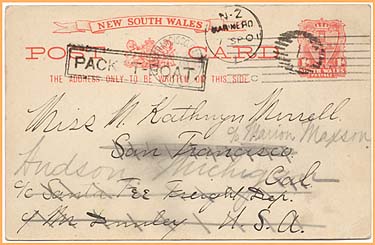 NEW SOUTH WALES
POST CARD
THE ADDRESS ONLY TO BE WRITTEN ON THIS SIDE
N-Z
MARINE P.O
PACKET BOAT
Miss M. Kathryn Murrell
c/o Marion Mapson
San Francisco
Cal
Hudson Michigan
c/o Santa Fee Freight Dep.
U.S.A.